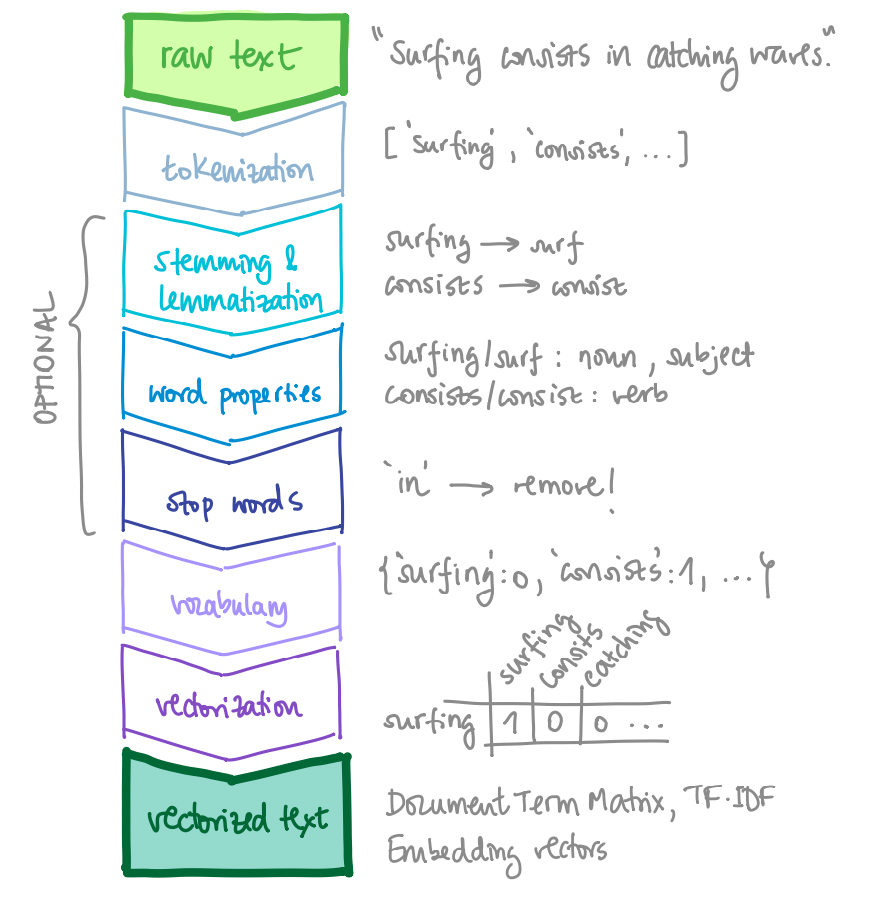 raw text
"Surfing consists in catching waves."
tokenization
['surfing', 'consists', ...]
OPTIONAL
stemming &
lemmatization
surfing → surf
consists → consist
word properties
surfing/surf : noun, subject
consists/consist : verb
stop words
'in' → remove!
vocabulary
{'surfing':0, 'consists':1, ...}
vectorization
surfing consits catching
surfing 1 0 0 ...
vectorized text
Document Term Matrix, TF-IDF
Embedding vectors